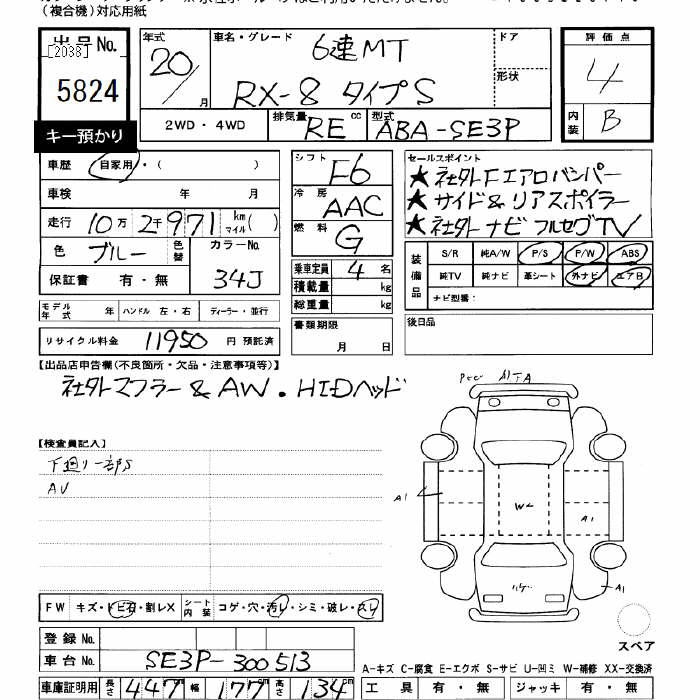 (複合機)対応用紙
出品No. 年式 車名・グレード 6速MT ドア 評価点
[2038] 20/月 RX-8 タイプS 形状 4
5824 2WD・4WD 排気量 RE cc 型式 ABA-SE3P 内装 B
キー預かり
車歴 自家用・( ) シフト F6 セールスポイント
★社外Fエアロバンパー
車検 年 月 冷房 AAC ★サイド&リアスポイラー
走行 10万2千971 km マイル( ) 燃料 G ★社外ナビフルセグTV
色 ブルー 色替 カラーNo. 34J 乗車定員 4名 装備品 S/R 純A/W P/S P/W ABS
保証書 有・無 積載量 kg 純TV 純ナビ 革シート 外ナビ エアB
総重量 kg ナビ型番:
モデル年式 年 ハンドル 左・右 ディーラー・並行 書類期限 月 日 後日品
リサイクル料金 11950 円 預託済
【出品店申告欄(不良箇所・欠品・注意事項等)】
社外マフラー&AW.HIDヘッド
【検査員記入】
下廻り一部S
AV
A1 W A1
A1
FW キズ・トビ石・割レX シート内装 コゲ・穴・汚レ・シミ・破レ・スレ
登録No. スペア
車台No. SE3P-300513 A-キズ C-腐食 E-エクボ S-サビ U-凹ミ W-補修 XX-交換済
車庫証明用 長さ 447cm 幅 177cm 高さ 134cm 工具 有・無 ジャッキ 有・無